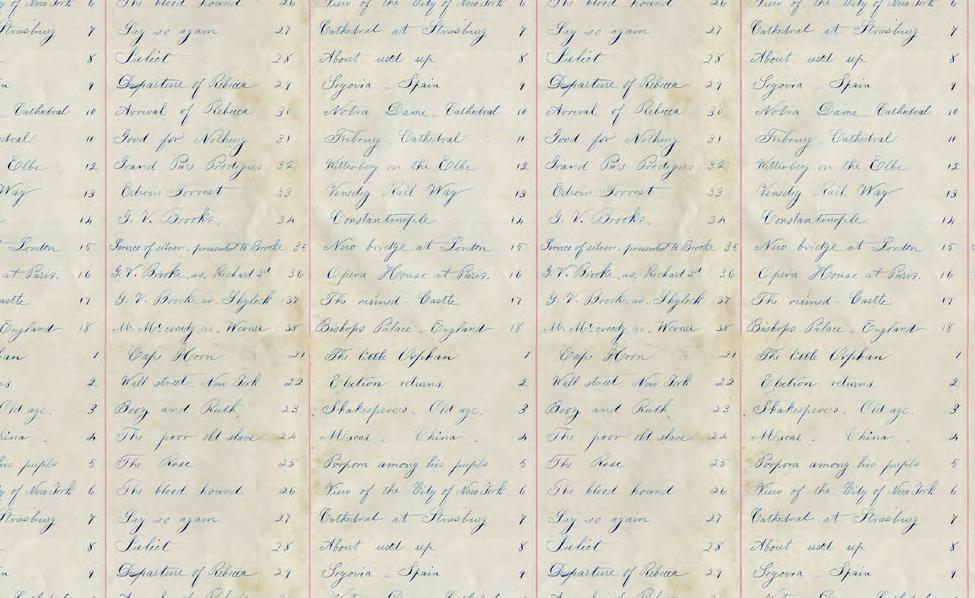 y of New York 6 The blood hound 26 View of the City of New York 6 The blood hound 26 View of the City of New York 6
Strasburg 7 Say so again 27 Cathedral at Strasburg 7 Say so again 27 Cathedral at Strasburg 7
8 Juliet 28 About used up 8 Juliet 28 About used up 8
n 9 Departure of Rebecca 29 Segovia .. Spain 9 Departure of Rebecca 29 Segovia .. Spain 9
.. Cathedral 10 Arrival of Rebecca 30 Notra Dame .. Cathedral 10 Arrival of Rebecca 30 Notra Dame .. Cathedral 10
dral 11 Good for Nothing 31 Fribourg . Cathedral 11 Good for Nothing 31 Fribourg . Cathedral 11
Elbe 12 Grand Pa's Prodigies 32 Wittenberg on the Elbe 12 Grand Pa's Prodigies 32 Wittenberg on the Elbe 12
Way 13 Edwin Forrest 33 Venedig Rail Way 13 Edwin Forrest 33 Venedig Rail Way 13
14 G. V. Brooks. 34 Constantinople 14 G. V. Brooks. 34 Constantinople 14
at London 15 Service of silver . presented to Brooke 35 New bridge at London 15 Service of silver . presented to Brooke 35 New bridge at London 15
at Paris. 16 G. V. Brooke . as . Richard 3d 36 Opera House at Paris. 16 G. V. Brooke . as . Richard 3d 36 Opera House at Paris. 16
astle 17 G. V. Brook . as . Shylock 37 The ruined - Castle 17 G. V. Brook . as . Shylock 37 The ruined - Castle 17
England 18 Mr. McCready as . Werner 38 Bishops Palace . England 18 Mr. McCready as . Werner 38 Bishops Palace . England 18
han 1 Cape Horn 21 The little Orphan 1 Cape Horn 21 The little Orphan 1
s. 2 Wall street . New York. 22 Election returns. 2 Wall street . New York. 22 Election returns. 2
Old age. 3 Booz and Ruth. 23 Shakesperes . Old age. 3 Booz and Ruth. 23 Shakesperes . Old age. 3
hina . 4 The poor old slave 24 Macai . China . 4 The poor old slave 24 Macai . China . 4
his pupils 5 The Rose 25 Porpora among his pupils 5 The Rose 25 Porpora among his pupils 5
y of New York 6 The blood hound 26 View of the City of New York 6 The blood hound 26 View of the City of New York 6
Strasburg 7 Say so again 27 Cathedral at Strasburg 7 Say so again 27 Cathedral at Strasburg 7
8 Juliet 28 About used up 8 Juliet 28 About used up 8
n 9 Departure of Rebecca 29 Segovia .. Spain 9 Departure of Rebecca 29 Segovia .. Spain 9